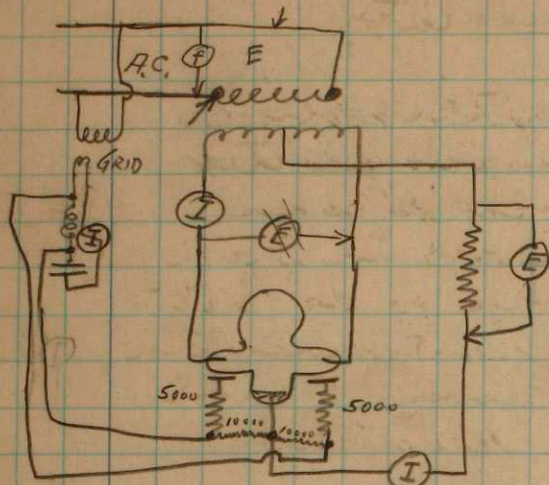 A.C.
f
E
GRID
I
I
E
E
5000
10000
10000
5000
I